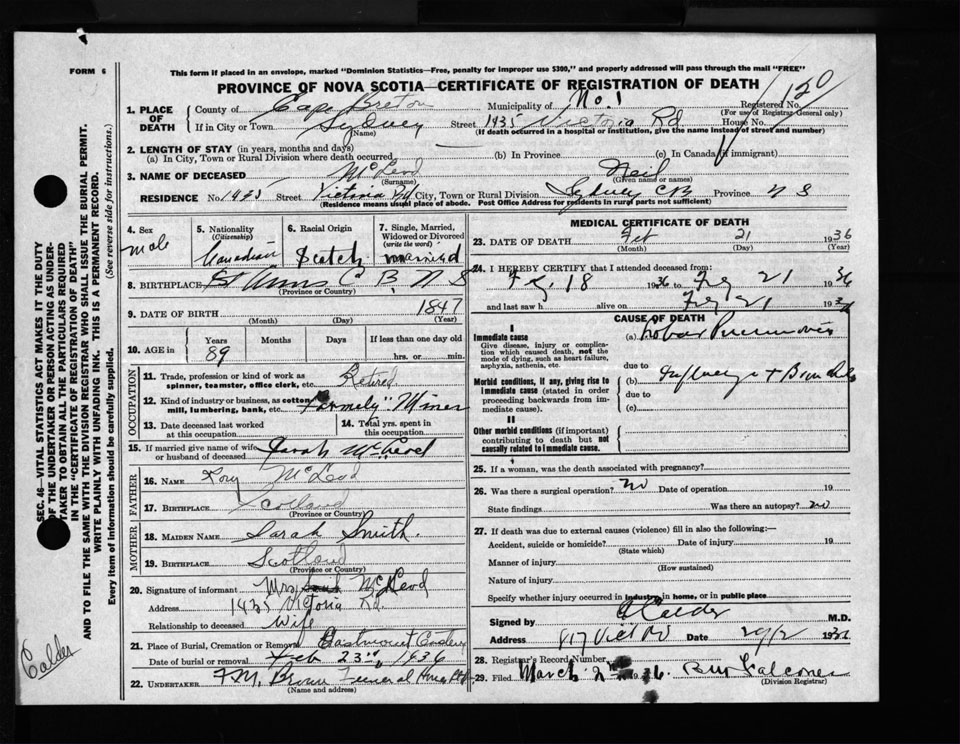 FORM 6
This form if placed in an envelope, marked "Dominion Statistics—Free, penalty for improper use $300," and properly addressed will pass through the mail "FREE"
PROVINCE OF NOVA SCOTIA—CERTIFICATE OF REGISTRATION OF DEATH
1. PLACE OF DEATH
County of Cape Breton Municipality of No. 1 Registered No. 120
(For use of Registrar General only)
If in City or Town Sydney Street 1435 Victoria Rd House No.
(Name) (If death occurred in a hospital or institution, give the name instead of street and number)
2. LENGTH OF STAY (in years, months and days)
(a) In City, Town or Rural Division where death occurred (b) In Province (c) In Canada (if immigrant)
3. NAME OF DECEASED McLeod Neil
(Surname) (Given name or names)
RESIDENCE No. 1435 Street Victoria Rd City, Town or Rural Division Sydney CB Province N S
(Residence means usual place of abode. Post Office Address for residents in rural parts not sufficient)
4. Sex
male
5. Nationality
(Citizenship)
Canadian
6. Racial Origin
Scotch
7. Single, Married, Widowed or Divorced
(write the word)
married
8. BIRTHPLACE St Anns C B, N S
(Province or Country)
9. DATE OF BIRTH 1847
(Month) (Day) (Year)
10. AGE in Years Months Days If less than one day old
89 hrs. or min.
OCCUPATION
11. Trade, profession or kind of work as spinner, teamster, office clerk, etc. Retired
12. Kind of industry or business, as cotton mill, lumbering, bank, etc. Formely "Miner
13. Date deceased last worked at this occupation
14. Total yrs. spent in this occupation
15. If married give name of wife or husband of deceased Sarah McLeod
FATHER
16. NAME Rory McLeod
17. BIRTHPLACE Scotland
(Province or Country)
MOTHER
18. MAIDEN NAME Sarah Smith.
19. BIRTHPLACE Scotland
(Province or Country)
20. Signature of informant Mrs McLeod
Address 1435 Victoria Rd.
Relationship to deceased Wife
21. Place of Burial, Cremation or Removal Eastmount
Date of burial or removal Feb 23rd, 1936
22. UNDERTAKER F.M. Brown Funeral
(Name and address)
MEDICAL CERTIFICATE OF DEATH
23. DATE OF DEATH Feb 21 1936
(Month) (Day) (Year)
24. I HEREBY CERTIFY that I attended deceased from:
18 1936 to 21 1936
and last saw h alive on 21 193
CAUSE OF DEATH
I
Immediate cause
Give disease, injury or complication which caused death, not the mode of dying, such as heart failure, asphyxia, asthenia, etc.
(a) Lobar Pneumonia
due to
Morbid conditions, if any, giving rise to immediate cause (stated in order proceeding backwards from immediate cause).
(b) Influenza +
due to
(c)
II
Other morbid conditions (if important) contributing to death but not causally related to immediate cause.
25. If a woman, was the death associated with pregnancy?
26. Was there a surgical operation? no Date of operation 19
State findings Was there an autopsy? no
27. If death was due to external causes (violence) fill in also the following:—
Accident, suicide or homicide? Date of injury 19
(State which)
Manner of injury
(How sustained)
Nature of injury
Specify whether injury occurred in industry, in home, or in public place
Signed by Calder M.D.
Address 817 Vict Rd Date 29/2 193
28. Registrar's Record Number
29. Filed March 2nd 1936.
(Division Registrar)
SEC. 46—VITAL STATISTICS ACT MAKES IT THE DUTY OF THE UNDERTAKER OR PERSON ACTING AS UNDERTAKER TO OBTAIN ALL THE PARTICULARS REQUIRED IN THE "CERTIFICATE OF REGISTRATION OF DEATH" AND TO FILE THE SAME WITH THE DIVISION REGISTRAR WHO SHALL ISSUE THE BURIAL PERMIT.
WRITE PLAINLY WITH UNFADING INK. THIS IS A PERMANENT RECORD.
Every item of information should be carefully supplied. (See reverse side for instructions).
Calder